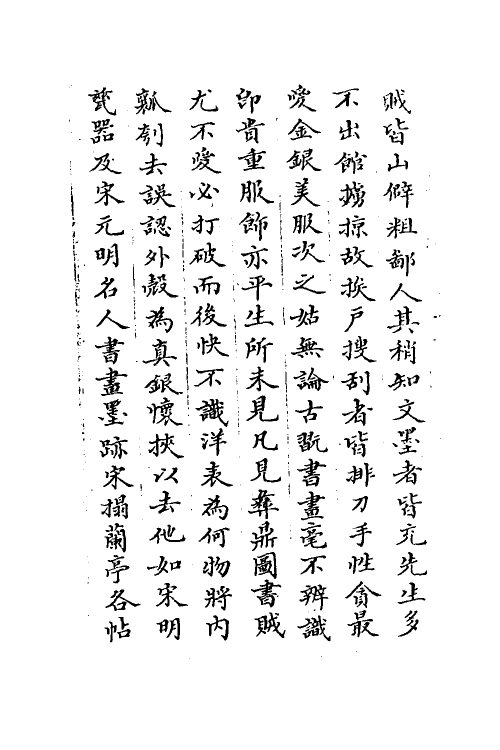 賊皆山僻粗鄙人其稍知文墨者皆充先生多
不出館擄掠故挨戶搜刮者皆排刀手性貪最
愛金銀美服次之姑無論古翫書畫毫不辨識
即貴重服飾亦平生所未見凡見彝鼎圖書賊
尤不愛必打破而後快不識洋表為何物將內
瓤刳去誤認外殼為真銀懷挾以去他如宋明
甆器及宋元明名人書畫墨跡宋搨蘭亭各帖